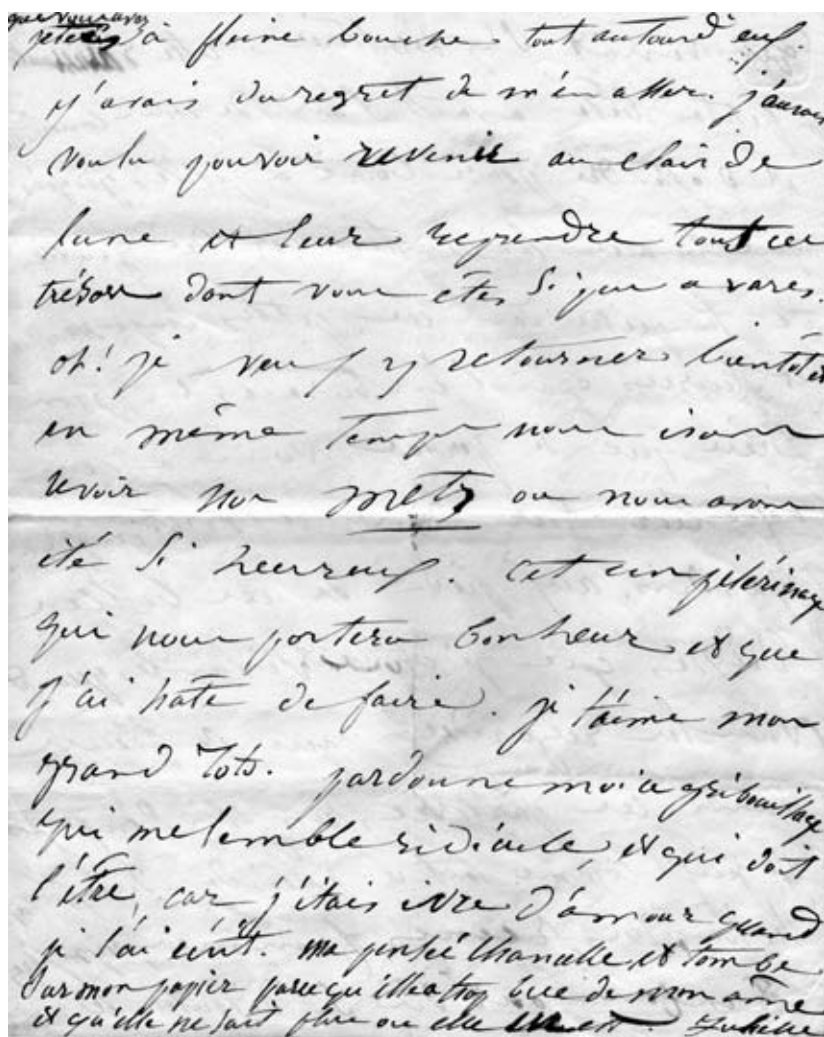 que vous avez
jetées à pleine bouche tout autour d'eux.
j'avais du regret de m'en aller. j'aurais
voulu pouvoir revenir au clair de
lune et leur reprendre tout ces
trésors dont vous êtes si peu avares.
oh! je veux y retourner bientôt et
en même temps nous irons
revoir nos metz ou nous avons
été si heureux. Cet un pélérinage
qui nous portera bonheur et que
j'ai hate de faire. je t'aime mon
grand Toto. pardonne moi ce gribouillage
qui me semble ridicule, et qui doit
l'être, car j'étais ivre d'amour quand
je l'ai écrit. ma pensée chancelle et tombe
sur mon papier parcequ'elle a trop bue de mon âme
et qu'elle ne sait plus ou elle en est. Juliette